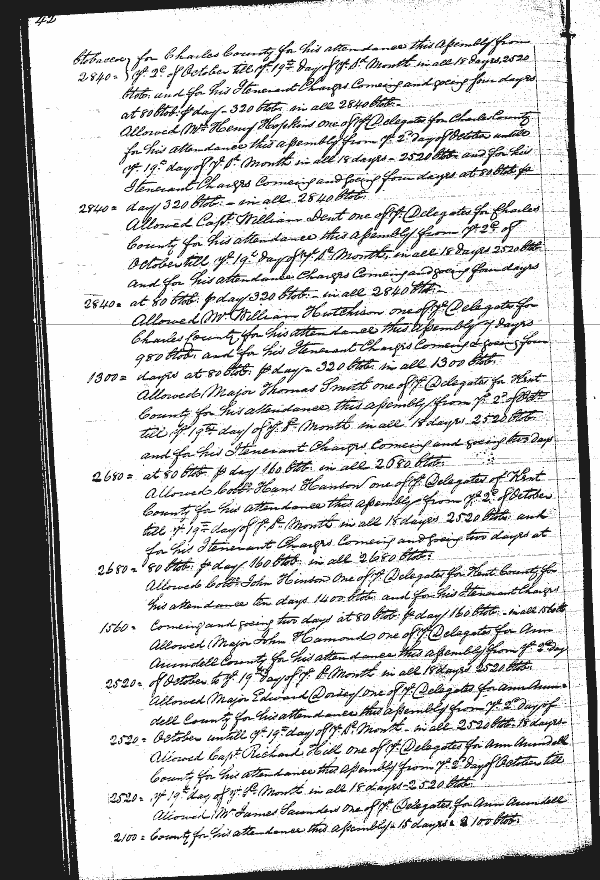 42
tobaccoe } for Charles County for his attendance this Assembly from
2840 = } ye. 2d. of October till ye. 19th. day of ye. sd. Month in all 18 days 2520
lbtob. and for his Itenerant Charges Comeing and going four days
at 80 lbtob: ⅌ day - 320 lbtob. in all 2840 lbtob. -
Allowed Mr. Henry Hopkins one of ye. Delegates for Charles County
for his attendance this assembly from ye. 2d. day of October untill
ye. 19th. day of ye. sd. Month in all 18 days - 2520 lbtob and for his
Itenerant Charges Comeing and going four days at 80 lbtob ⅌
2840 = day 320 lbtob. - in all 2840 lbtob.
Allowed Capt. William Dent one of ye. Delegates for Charles
County for his attendance this assembly from ye. 2d. of
October till ye. 19th. day of ye. sd. Month, in all 18 days 2520 lbtob
and for his attendance Charges Comeing and going four days
2840 = at 80 lbtob. ⅌ day 320 lbtob. - in all 2840 lbtob. -
Allowed Mr. William Hutchison one of ye. Delegate for
Charles County for his attendance this Assembly 7 days
980 lbtob. and for his Itenerant Charges Comeing & going four
1300 = days at 80 lbtob. ⅌ day - 320 lbtob. in all 1300 lbtob.
Allowed Major Thomas Smith one of ye. Delegates for Kent
County for his attendance, this assembly from ye. 2d. of Octbr.
till ye. 19th day of ye. sd. Month in all 18 days - 2520 lbtob.
and for his Itenerant Charges Comeing and going two days
2680 = at 80 lbtob. ⅌ day 160 lbtob. in all 2680 lbtob.
Allowed Collo. Hans Hanson one of ye. Delegates of Kent
County for his attendance this assembly from ye. 2d. of October
till ye 19th day of ye. sd. Month in all 18 days 2520 lbtob. and
for his Itenerant Charges Comeing and going two days at
2680 = 80 lbtob. ⅌ day 160 lbtob. in all 2680 lbtob.
Allowed Collo. John Hinson one of ye. Delegates for Kent County for
his attendance ten days. 1400 lbtob. and for his Itenerant Charges
1560 = Comeing and going two days at 80 lbtob. ⅌ day 160 lbtob. - in all 1560 lbtob
Allowed Major John Hamond one of ye. Delegates for Ann
Arundell County for his attendance this assembly from ye. 2d day
2520 = of October to ye. 19th day of ye. sd. Month in all 18 days. 2520 lbtob.
Allowed Major Edward Dorsey one of ye. Delegates for Ann Arun=
dell County for his attendance this assembly from ye. 2d. day of
2520 = October untill ye. 19th. day of ye. sd. Month - in all 2520 lbtob. 18 days -
Allowed Capt. Richard Hill one of ye. Delegates for Ann Arundell
County for his attendance this Assembly from ye. 2d. day of October till
2520 = ye. 19th. day of ye. sd. Month in all 18 days - 2520 lbtob.
Allowed Mr. James Saunders one of ye. Delegates for Ann Arundell
2100 = County for his attendance this assembly 15 days = 2100 lbtob.